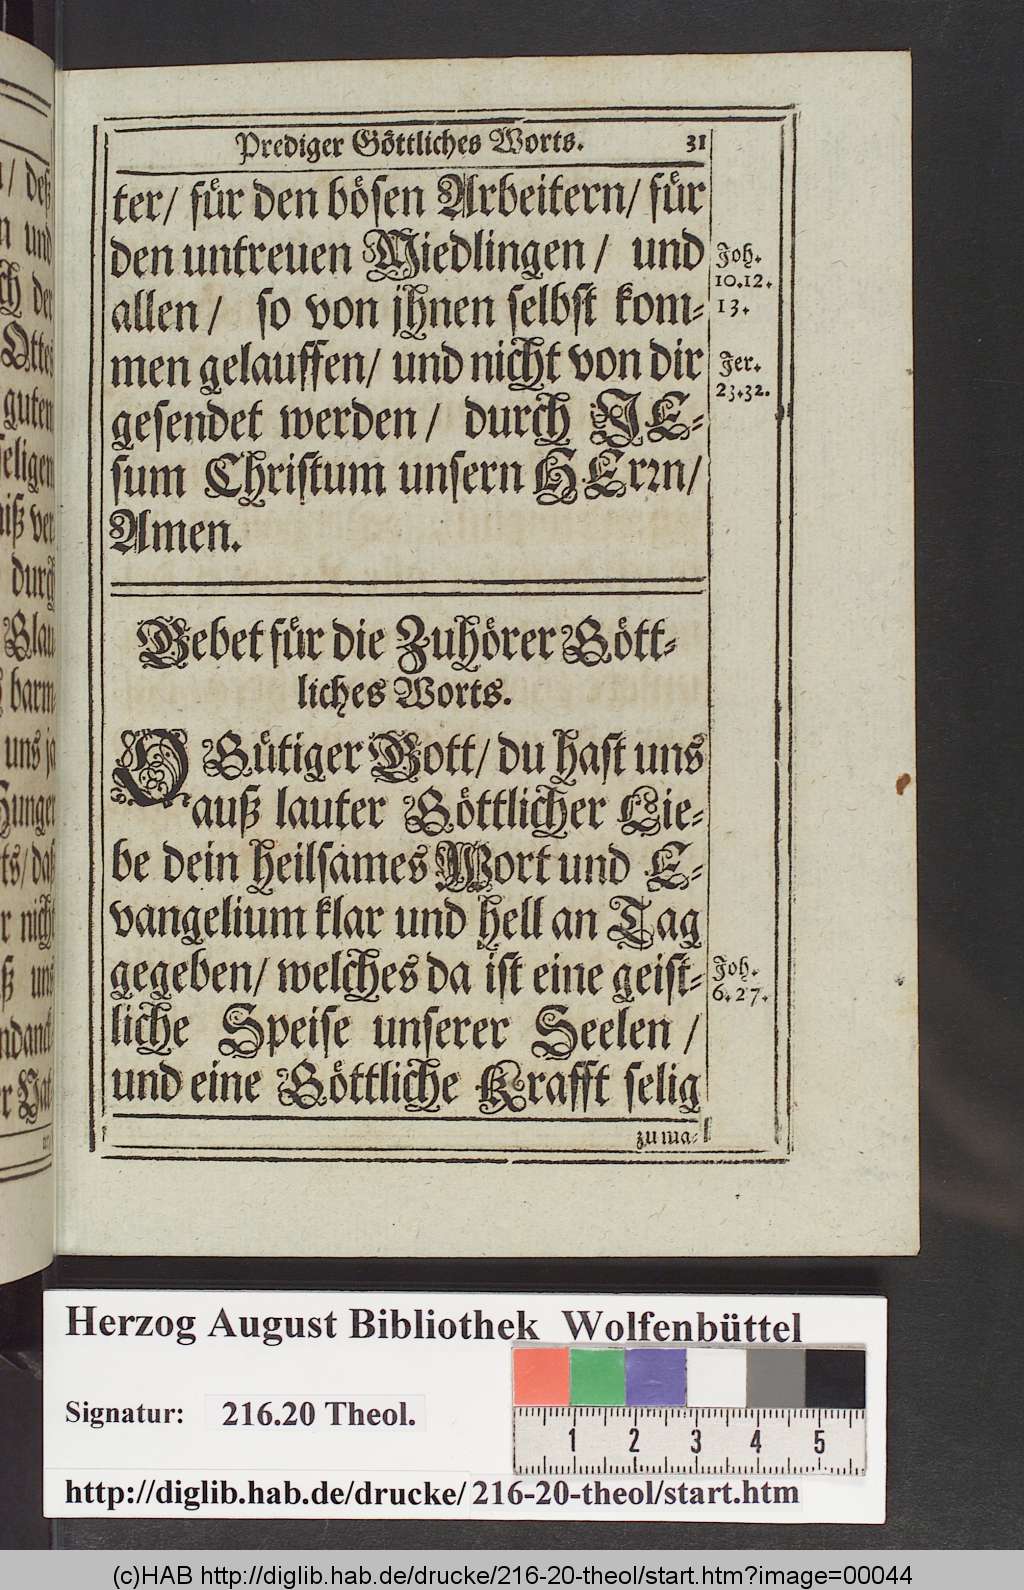 Prediger Göttliches Worts. 31
ter/ für den bösen Arbeitern/ für
den untreuen Miedlingen / und
allen / so von jhnen selbst kom-
men gelauffen/ und nicht von dir
gesendet werden / durch JE-
sum Christum unsern HErrn/
Amen.
Joh.
10.12.
13.
Jer.
23.32.
Gebet für die Zuhörer Gött-
liches Worts.
O Gütiger Gott/ du hast uns
auß lauter Göttlicher Lie-
be dein heilsames Wort und E-
vangelium klar und hell an Tag
gegeben/ welches da ist eine geist-
liche Speise unserer Seelen /
und eine Göttliche Krafft selig
Joh.
6.27.
zu ma-
/ deß
und
der
Ottes
guten
seligen
ver
durch
Glau
barm-
uns ja
Hunger
ts/ daß
r nicht
ß uns
ndanck-
Herzog August Bibliothek Wolfenbüttel
Signatur: 216.20 Theol.
1 2 3 4 5
http://diglib.hab.de/drucke/216-20-theol/start.htm
(c)HAB http://diglib.hab.de/drucke/216-20-theol/start.htm?image=00044